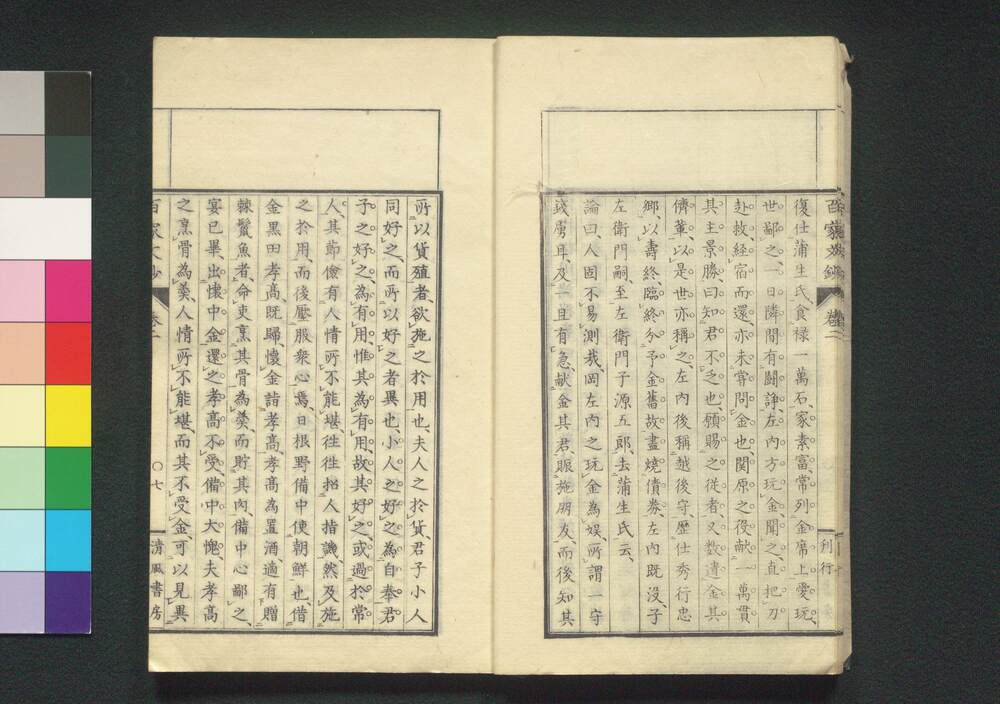 百家文鈔 卷二 刊行
復仕蒲生氏、食祿一萬石、家素富、常列金席上愛玩、
世鄙之、一日隣間有鬪諍、左內方玩金、聞之直把刀
赴救、經宿而還、亦未嘗問金也、関原之役、献一萬貫
其主景勝、曰知君不乏也、願賜之從者、又数遺金其
儕輩、以是世亦稱之、左內後稱越後守、歷仕秀行忠
鄉、以壽終、臨終分予金舊故、盡燒債劵、左內既沒、子
左衛門嗣、至左衛門子源五郎、去蒲生氏云、
論曰、人固不易測哉、岡左內之玩金為娯、所謂一守
錢虜耳、及一旦有急、献金其君、賑施朋友、而後知其
所以貨殖者、欲施之於用也、夫人之於貨、君子小人
同好之、而所以好之者異也、小人之好之、為自奉、君
子之好之、為有用、惟其為有用、故其好之、或過於常
人、其節儉有人情所不能堪、徃徃招人指譏、然及施
之於用、而後壓服衆心焉、日根野備中使朝鮮也、借
金黑田孝高、既歸、懷金詣孝高、孝高為置酒、適有贈
棘鬣魚者、命吏烹其骨為羮、而貯其肉、備中心鄙之、
宴已畢、出懷中金還之、孝高不受、備中大愧、夫孝高
之烹骨為羮、人情所不能堪、而其不受金、可以見異
百家文鈔 卷二 〇七 清風書房